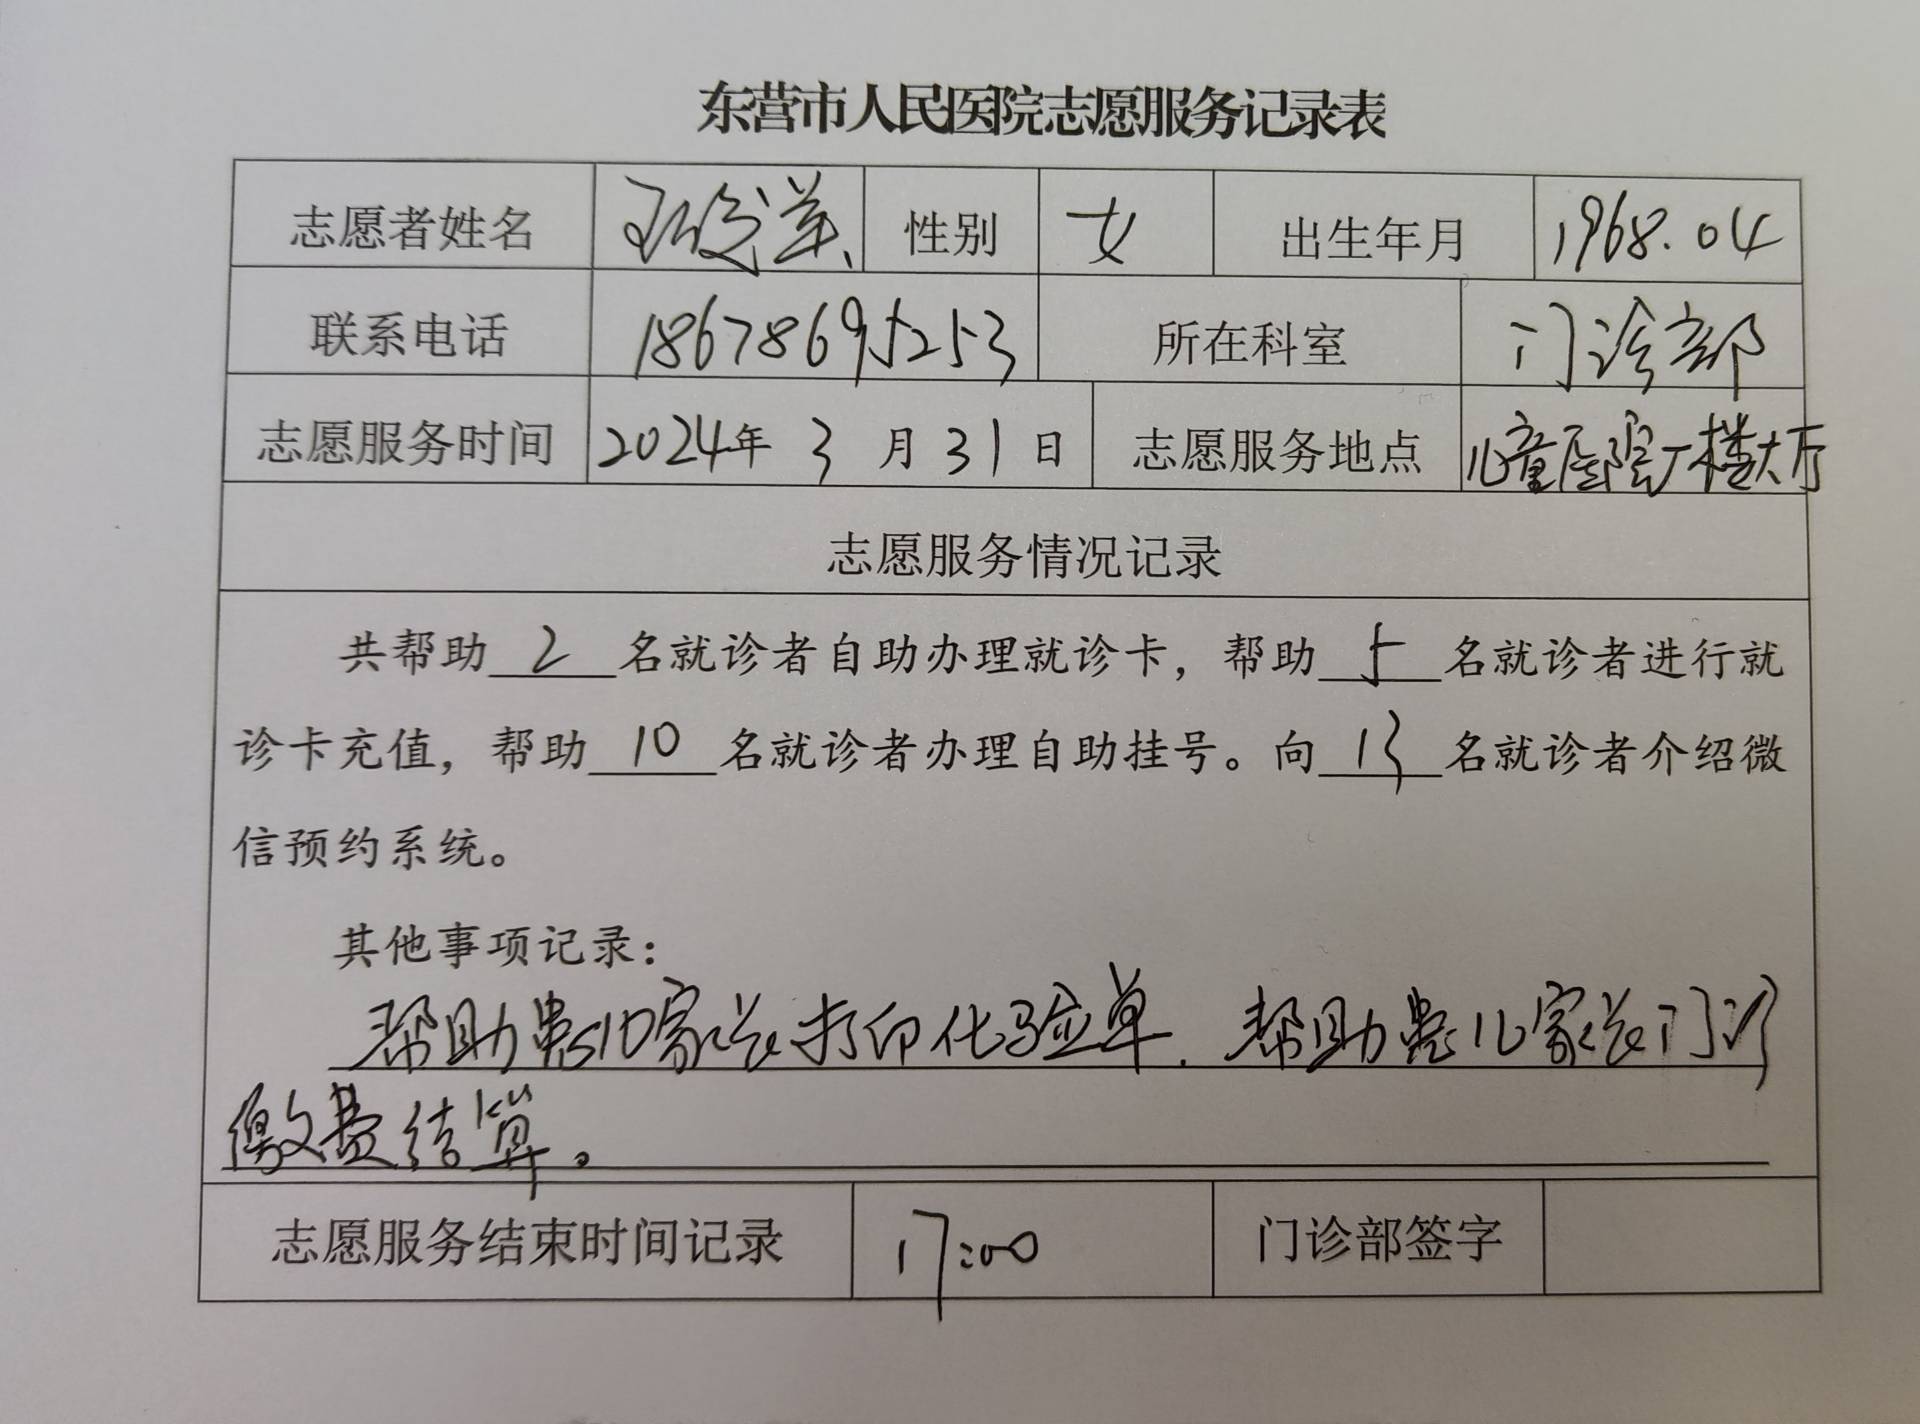 东营市人民医院志愿服务记录表
志愿者姓名 性别 女 出生年月 1968.04
联系电话 18678695253 所在科室 门诊部
志愿服务时间 2024年 3 月 31 日 志愿服务地点 儿童医院一楼大厅
志愿服务情况记录
共帮助 2 名就诊者自助办理就诊卡，帮助 5 名就诊者进行就
诊卡充值，帮助 10 名就诊者办理自助挂号。向 13 名就诊者介绍微
信预约系统。
其他事项记录：
帮助患儿家长打印化验单，帮助患儿家长门诊
缴费结算。
志愿服务结束时间记录 17:00 门诊部签字